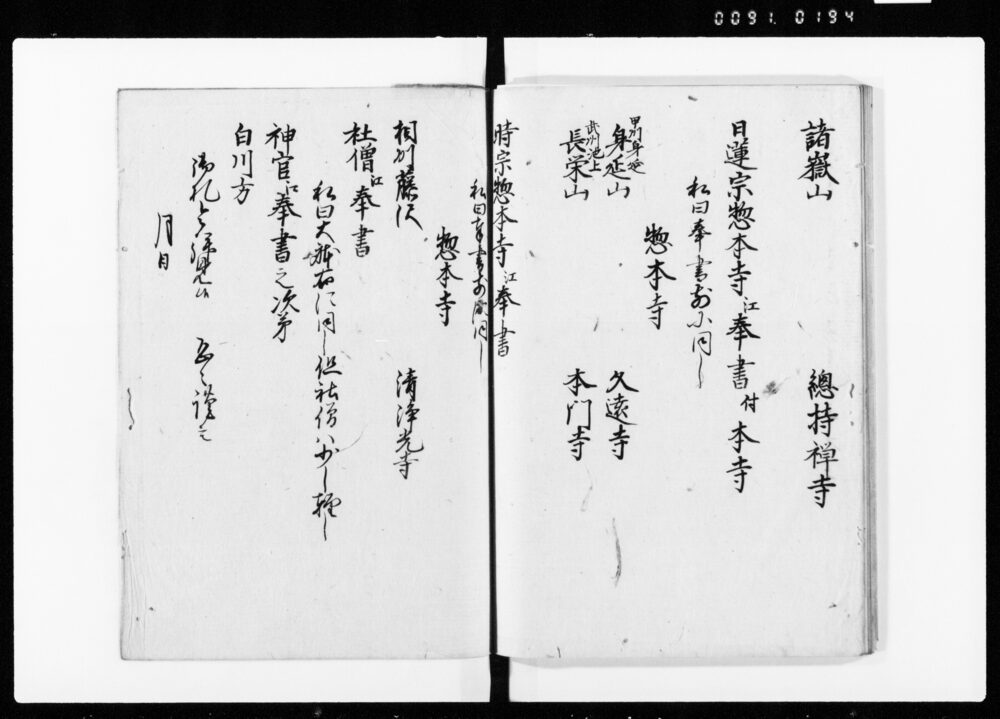 0091.0194
諸嶽山 總持禅寺
日蓮宗惣本寺江奉書付本寺
私曰奉書前ニ同し
惣本寺
甲州身延
身延山 久遠寺
武州池上
長栄山 本門寺
時宗惣本寺江奉書
私曰奉書前同し
惣本寺
相州藤沢 清浄光寺
社僧江奉書
私曰大躰右ニ同し但社僧ハ少し軽し
神官江奉書之次第
白川方
御札令披見候 恐々謹言
月日